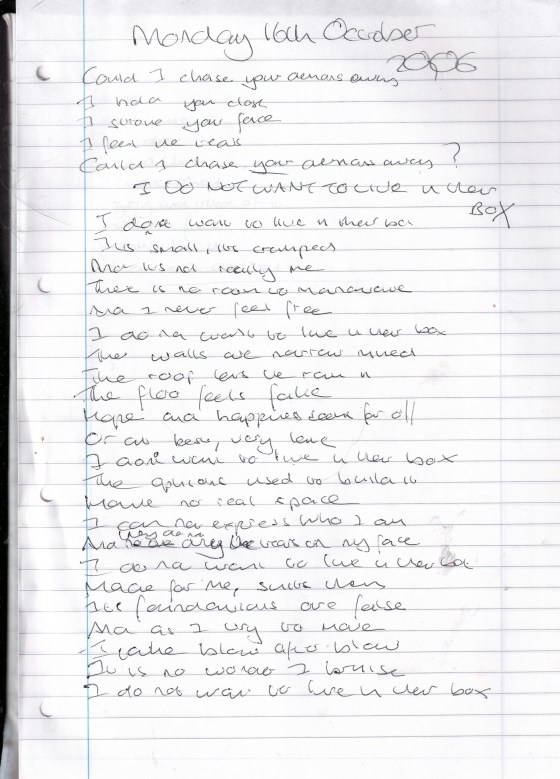 Monday 16th October
2006
Could I chase your demons away
I hold you close
I stroke your face
I feel the tears
Could I chase your demons away?
I DO NOT WANT TO LIVE in their
BOX
I dont want to live in their box
Its small, its cramped
And its not really me
There is no room to manoeuvre
And I never feel free
I do not want to live in their box
The walls are narrow
The roof lets the rain in
The floo feels fake
Hope and happines seem far off
Or at best, very late
I dont want to live in their box
The opinions used to build it
Have no real space
I can not express who I am
And they do not the tears on my face
I do not want to live in their box
Made for me, suits them
Its foundations are false
And as I try to move
I take blow after blow
It is no wonder I bruise
I do not want to live in their box